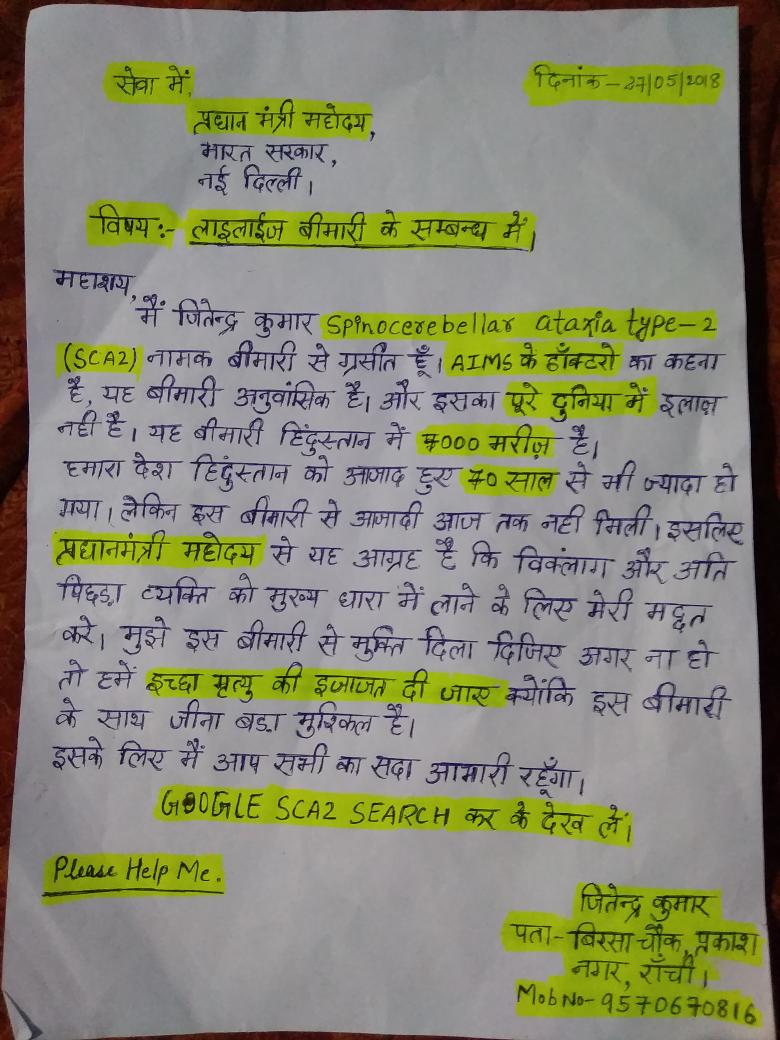 सेवा में,
दिनांक - 27/05/2018
प्रधान मंत्री महोदय,
भारत सरकार,
नई दिल्ली।
विषय:- लाइलाईज बीमारी के सम्बन्ध में।
महाशय,
मैं जितेन्द्र कुमार Spinocerebellar ataxia type-2
(SCA2) नामक बीमारी से ग्रसीत हूँ। AIMS के डॉक्टरो का कहना
है, यह बीमारी अनुवांसिक है। और इसका पूरे दुनिया में इलाज़
नही है। यह बीमारी हिंदुस्तान में 7000 मरीज़ है।
हमारा देश हिंदुस्तान को आजाद हुए 70 साल से भी ज्यादा हो
गया। लेकिन इस बीमारी से आजादी आज तक नही मिली। इसलिए
प्रधानमंत्री महोदय से यह आग्रह है कि विक्लांग और अति
पिछड़ा व्यक्ति को मुख्य धारा में लाने के लिए मेरी मद्दत
करे। मुझे इस बीमारी से मुक्ति दिला दिजिए अगर ना हो
तो हमें इच्छा मृत्यु की इजाजत दी जाए क्योंकि इस बीमारी
के साथ जीना बड़ा मुश्किल है।
इसके लिए मैं आप सभी का सदा आभारी रहूँगा।
GOOGLE SCA2 SEARCH कर के देख लें।
Please Help Me.
जितेन्द्र कुमार
पता- बिरसा चौक, प्रकाश
नगर, राँची।
Mob No- 9570670816